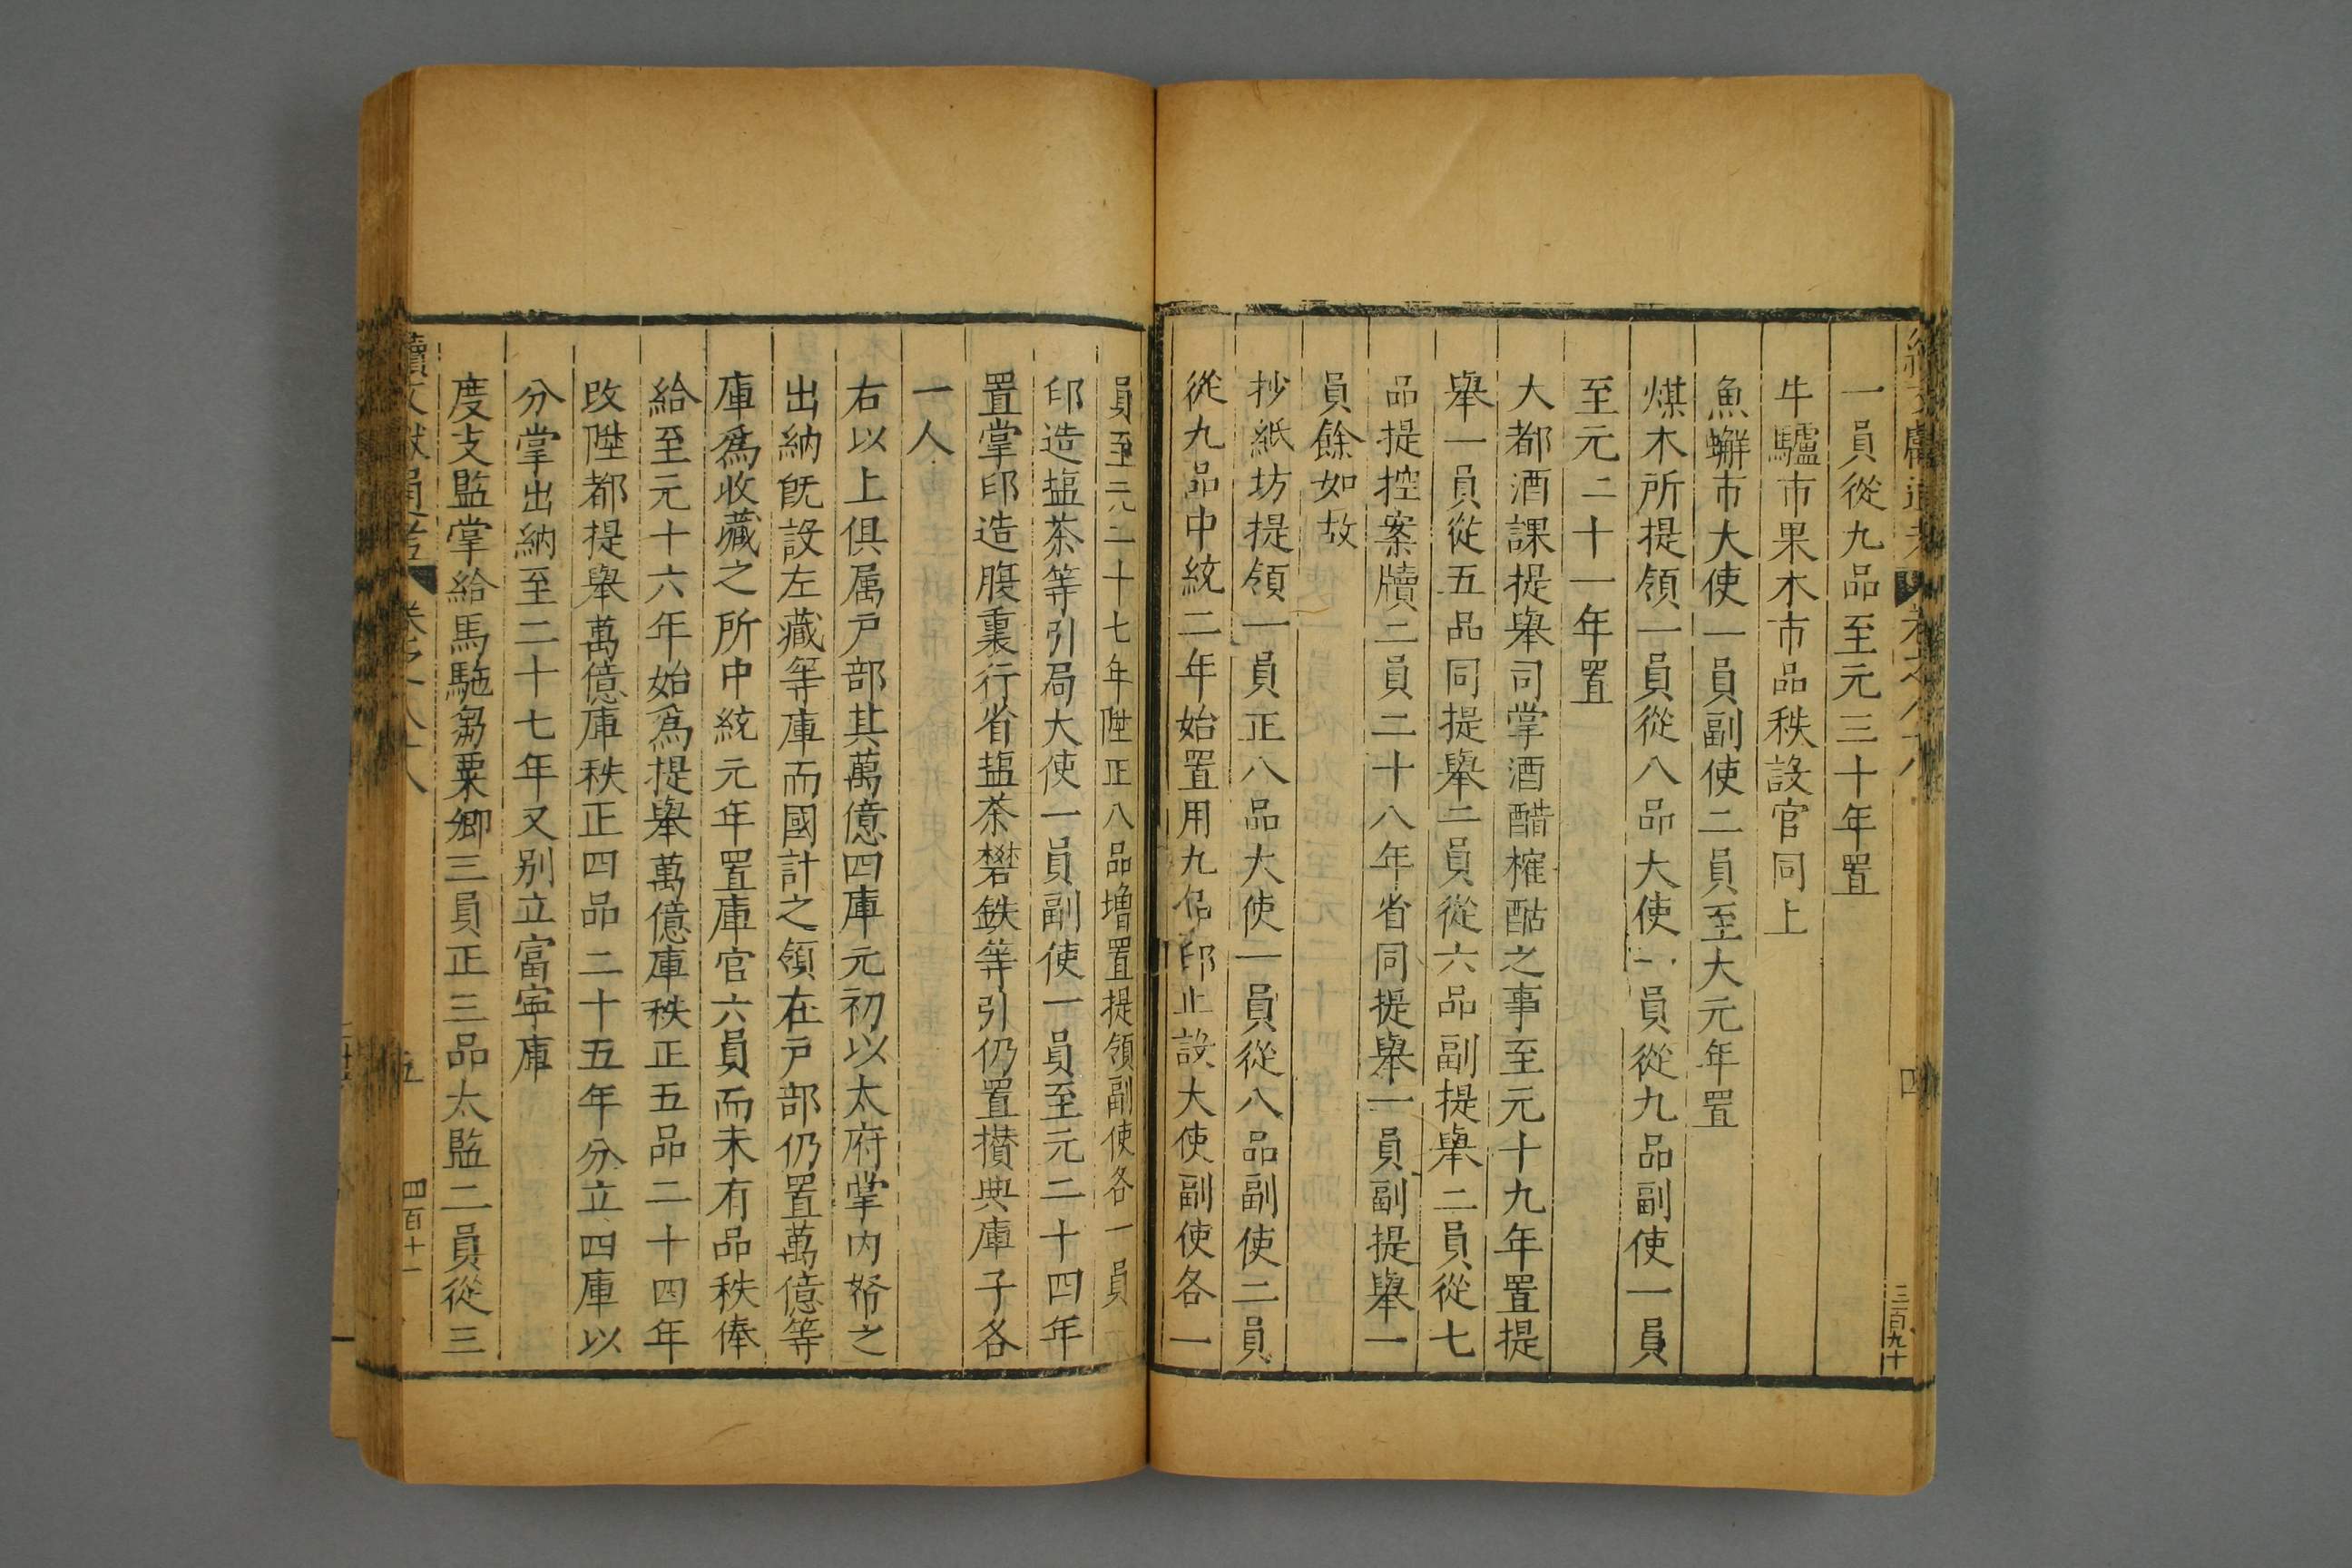 一員從九品至元三十年置
牛驢市果木市品秩設官同上
魚蠏市大使一員副使二員至大元年置
煤木所提領一員從八品大使一員從九品副使一員
至元二十一年置
大都酒課提舉司掌酒醋榷酤之事至元十九年置提
舉一員從五品同提舉二員從六品副提舉二員從七
品提控案牘二員二十八年省同提舉一員副提舉一
員餘如故
抄紙坊提領一員正八品大使一員從八品副使二員
從九品中統二年始置用九品印止設大使副使各一
員至元二十七年陞正八品增置提領副使各一員
印造塩茶等引局大使一員副使一員至元二十四年
置掌印造腹裏行省塩茶礬鉄等引仍置攅典庫子各
一人
右以上俱属户部其萬億四庫元初以太府掌内帑之
出納既設左藏等庫而國計之領在户部仍置萬億等
庫爲收藏之所中統元年置庫官六員而未有品秩俸
給至元十六年始爲提舉萬億庫秩正五品二十四年
改陞都提舉萬億庫秩正四品二十五年分立四庫以
分掌出納至二十七年又别立富寧庫
度支監掌給馬駞芻粟卿三員正三品太監二員從三
續文獻通考
卷之八十八
四
三百九十
五
四百十一